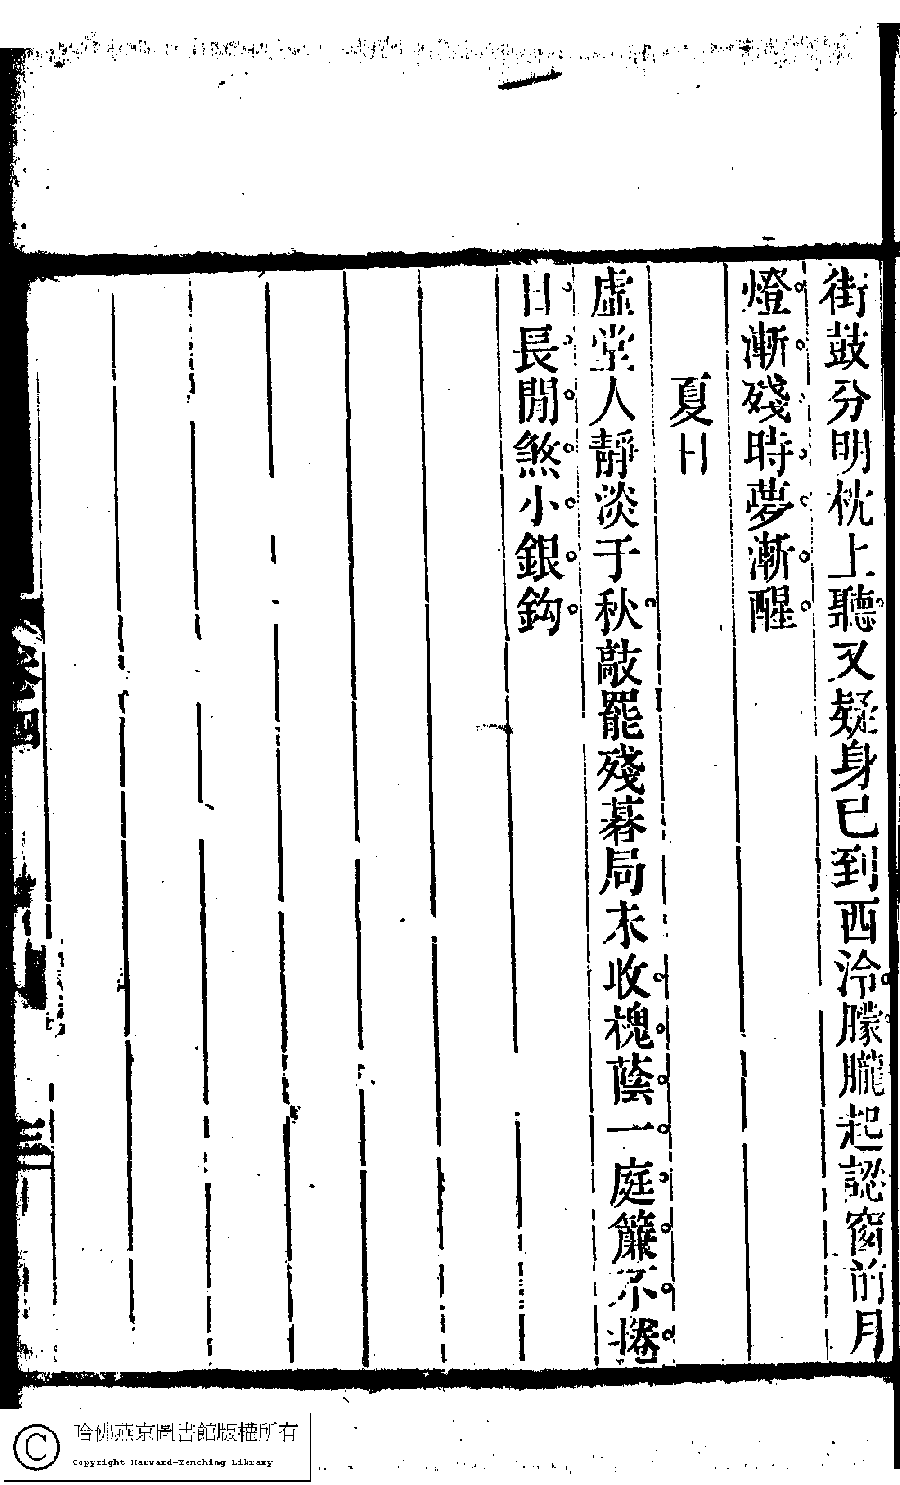 街鼓分明枕上聽又疑身已到西泠朦朧起認窗前月
燈漸殘時夢漸醒
夏日
虛堂人靜淡于秋敲罷殘碁局未收槐蔭一庭簾不捲
日長閒煞小銀鈎
卷四
哈佛燕京圖書館版權所有
Copyright Harvard-Yenching Library